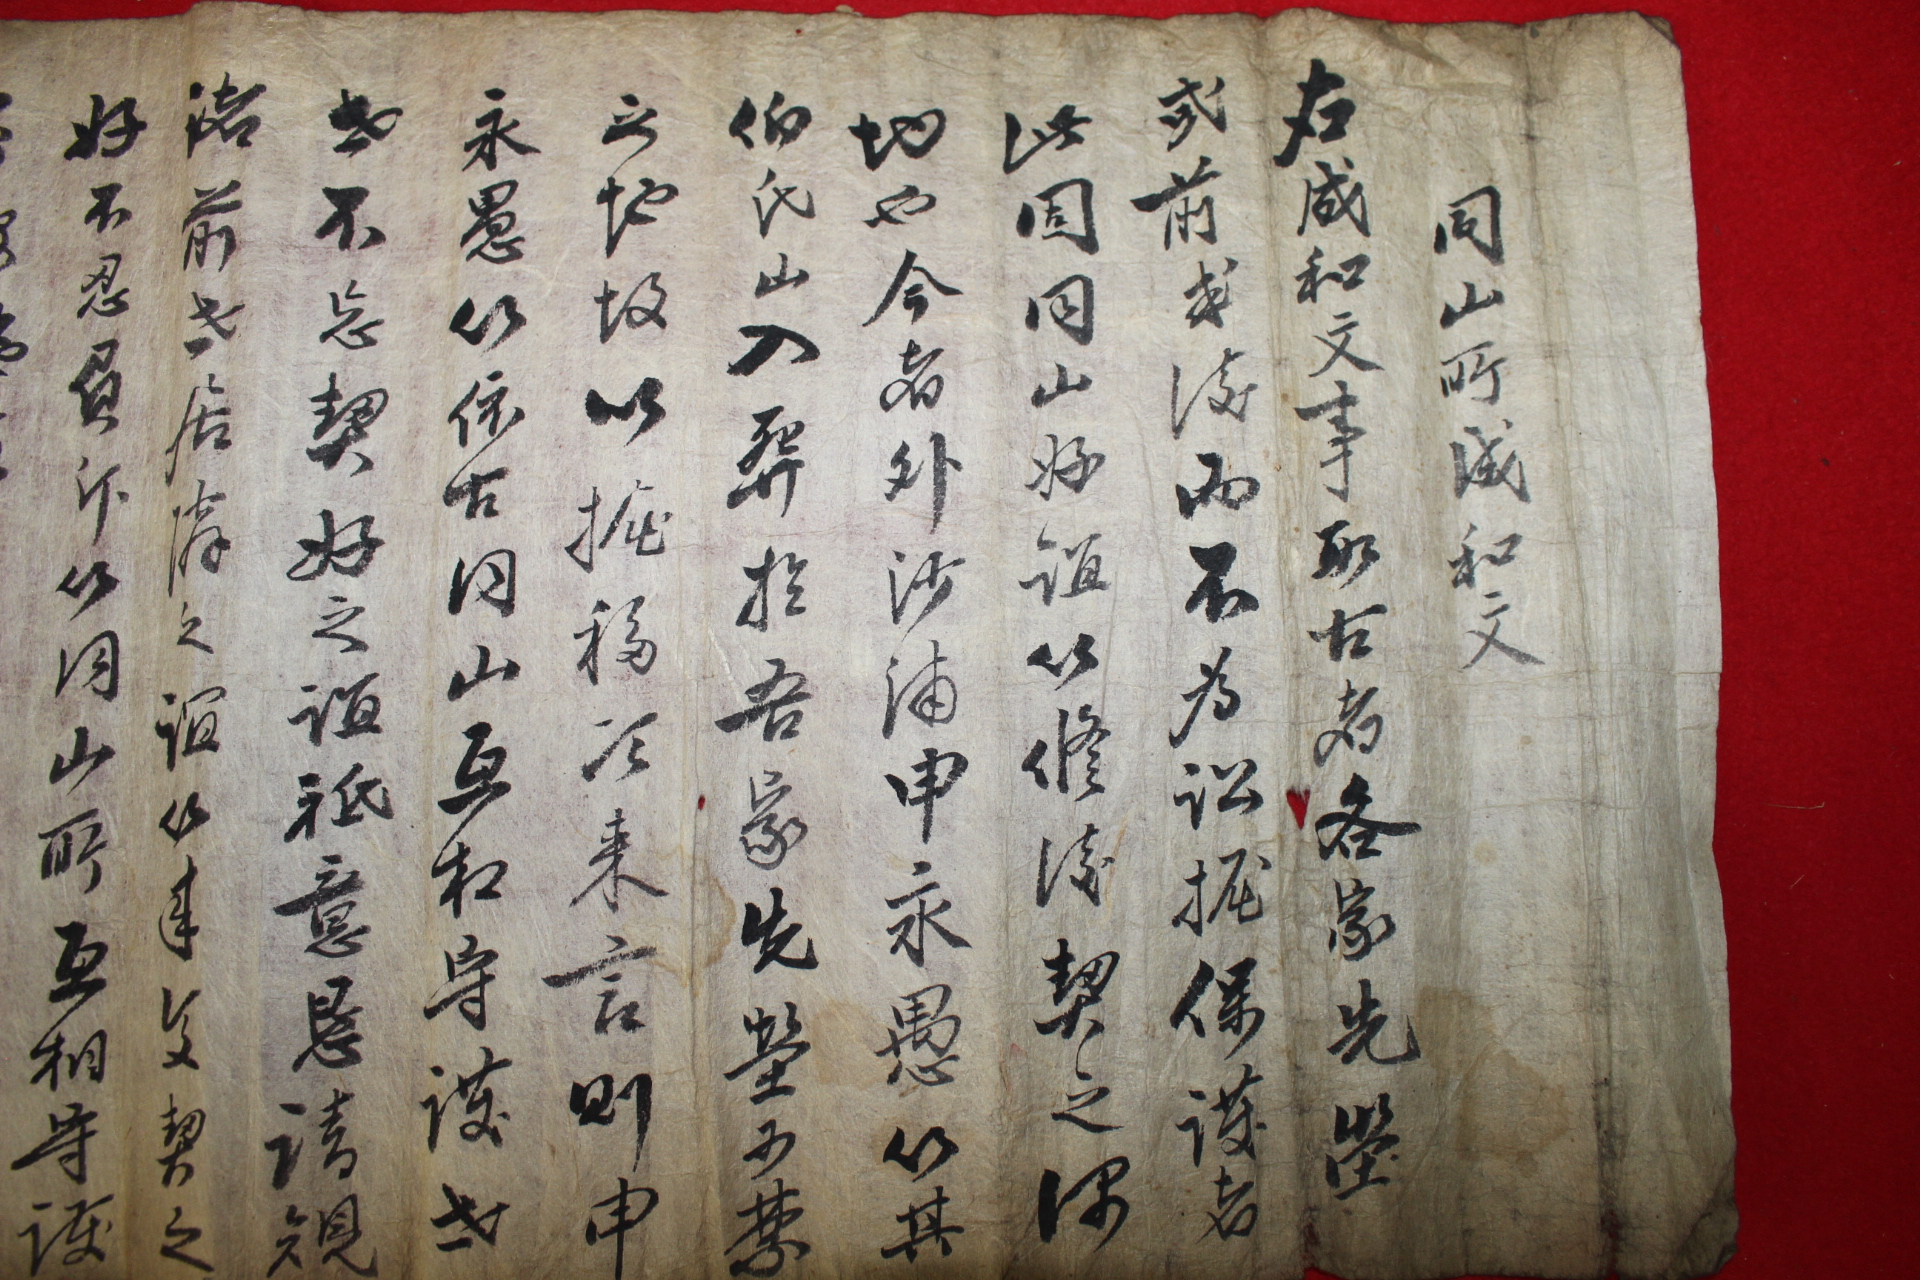 同山所成和文
右成和文事耿古者各家先塋
或前或後而不為訟掘保護者
此因同山好誼以修後契之深
切也今者外沙浦申永愚以其
伯氏山入葬於吾家先塋可禁
之地故以掘移次来言則申
永愚以依古同山互相守護世
世不忘契好之誼祗意恳請視
諸前世居隣之誼以来後契之
好不忍負斥以同山所互相守護